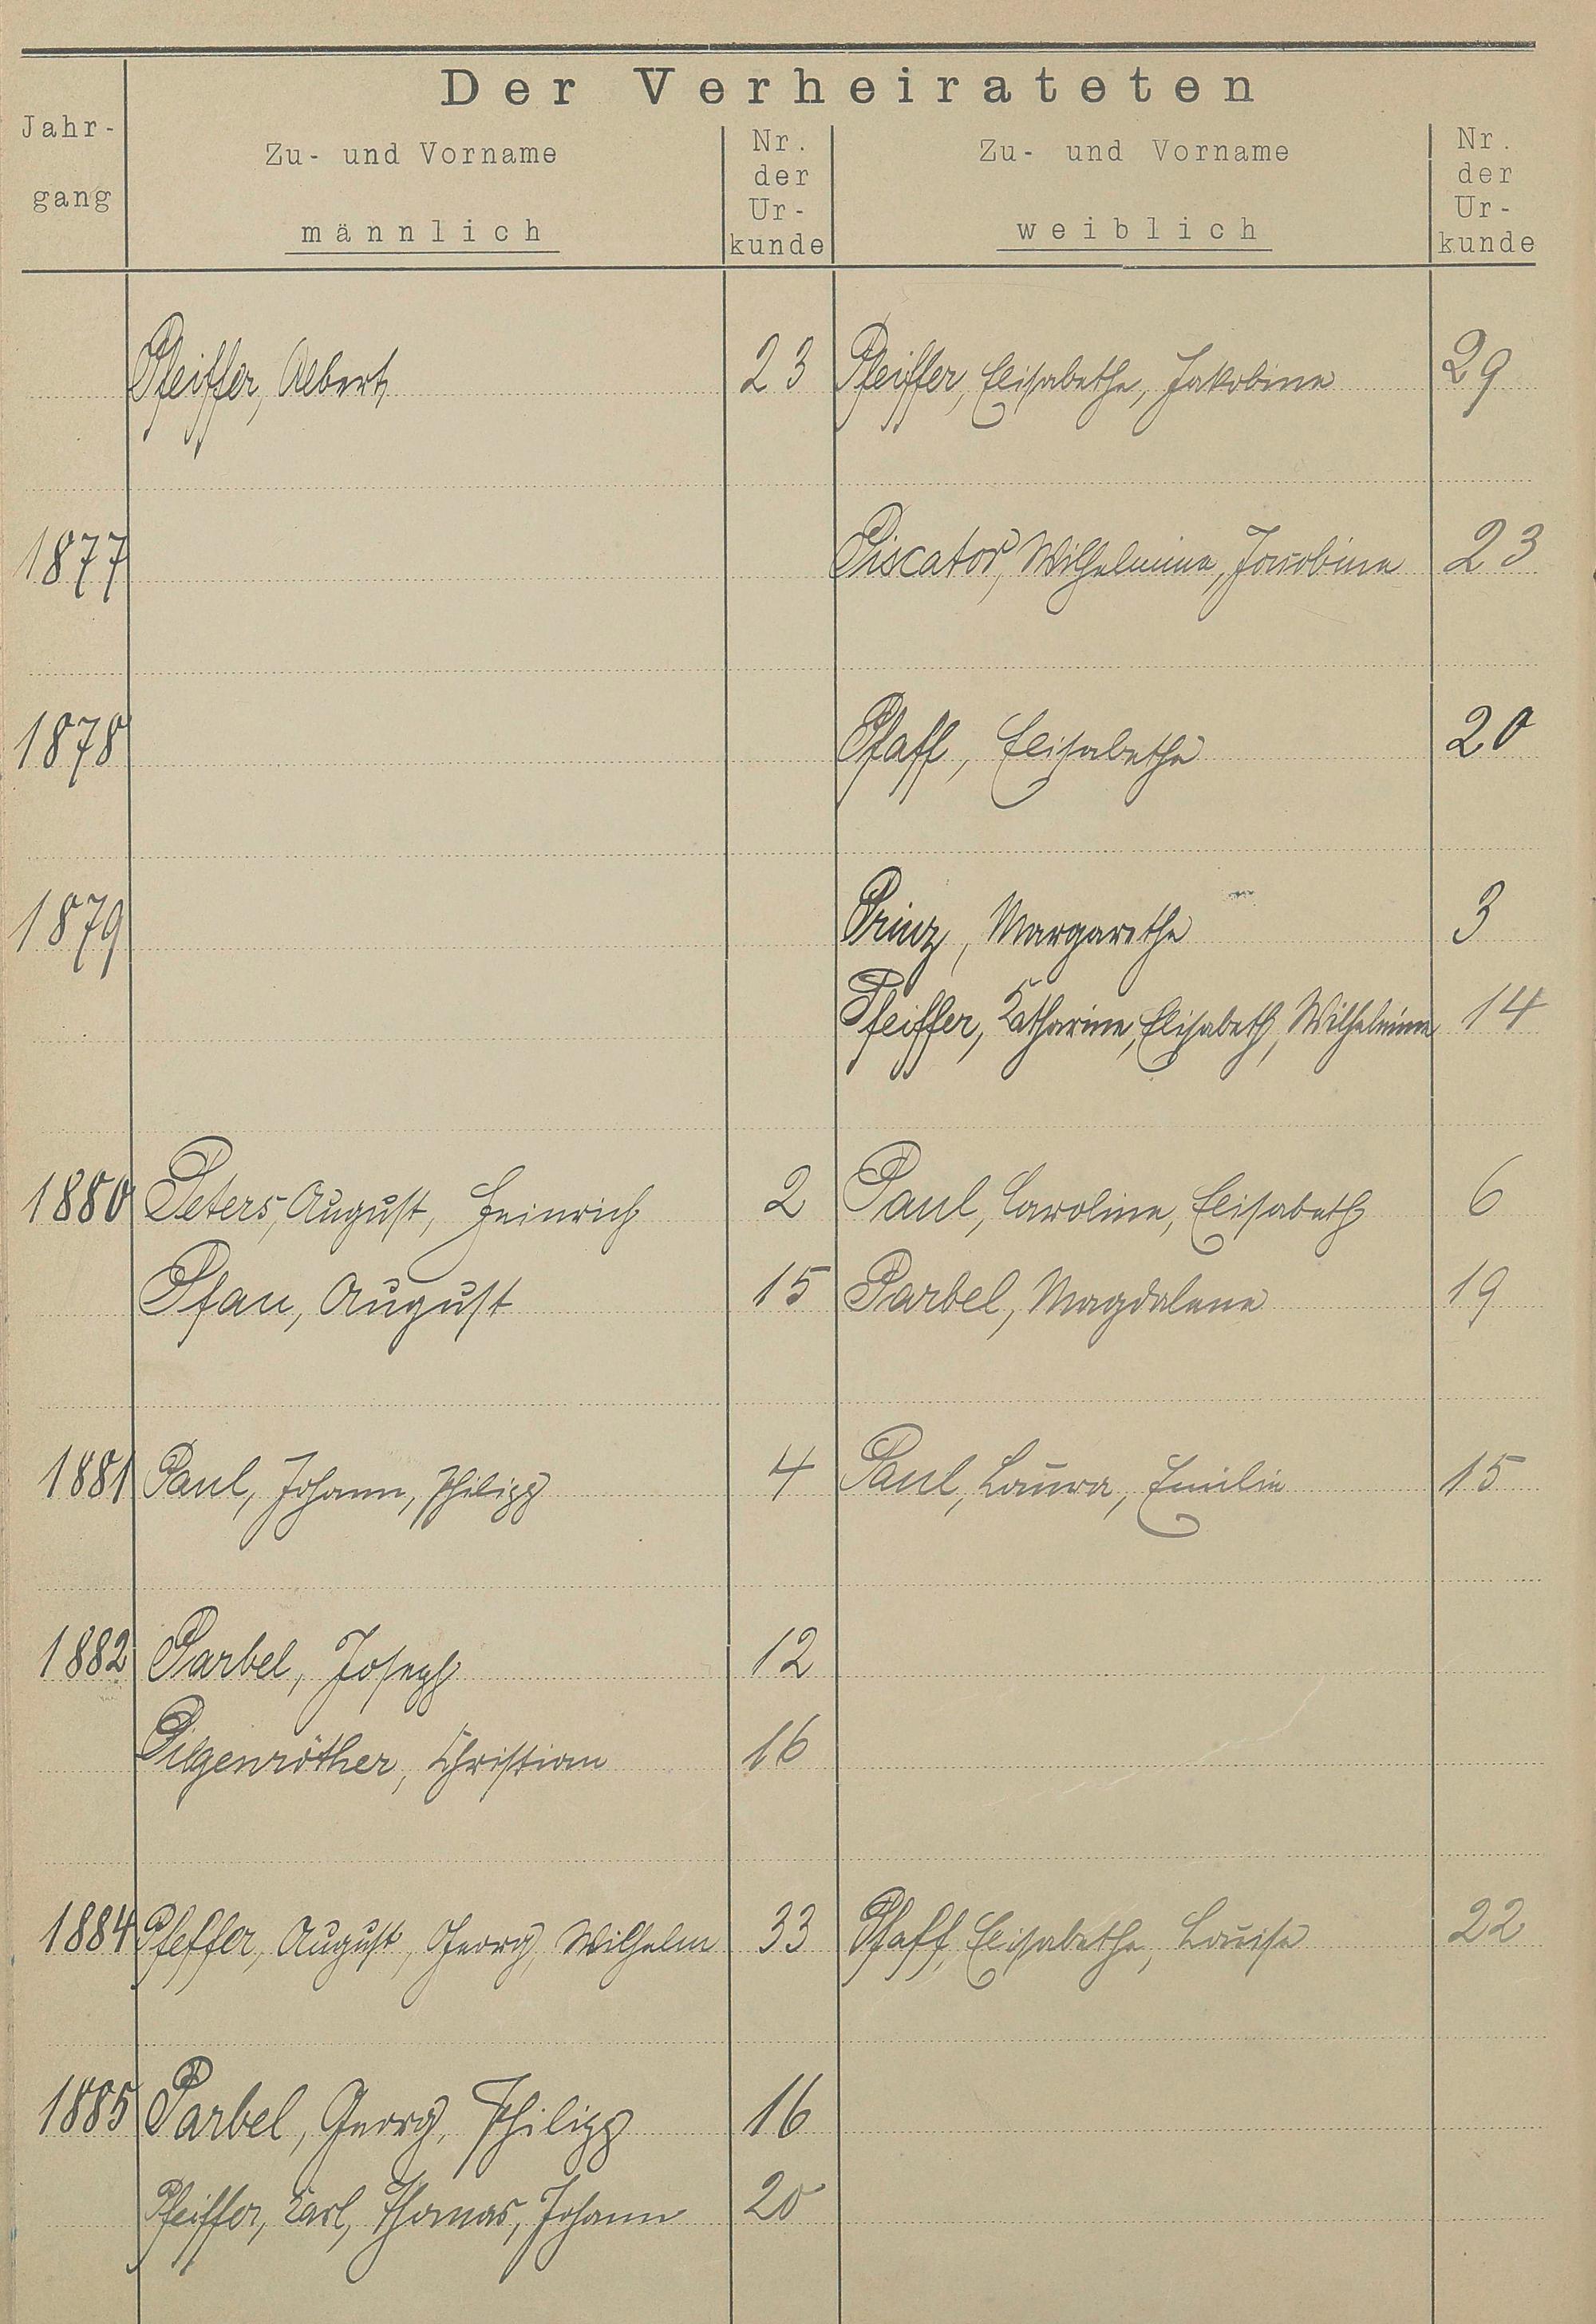 Der Verheirateten
Jahr-
gang
Zu- und Vorname
männlich
Nr.
der
Ur-
kunde
Zu- und Vorname
weiblich
Nr.
der
Ur-
kunde
Pfeiffer, Albert 23 Pfeiffer, Elisabethe, Jakobine 29
1877 Piscator, Wilhelmine, Jacobine 23
1878 Pfaff, Elisabethe 20
1879 Prinz, Margarethe 3
Pfeiffer, Katharine, Elisabeth, Wilhelmine 14
1880 Peters, August, Heinrich 2 Paul, Caroline, Elisabeth 6
Pfau, August 15 Parbel, Magdalena 19
1881 Paul, Johann, Philipp 4 Paul, Laura, Emilie 15
1882 Parbel, Joseph 12
Pilgenröther, Christian 16
1884 Pfeffer, August, Georg, Wilhelm 33 Pfaff, Elisabethe, Louise 22
1885 Parbel, Georg, Philipp 16
Pfeiffer, Karl, Thomas, Johann 20